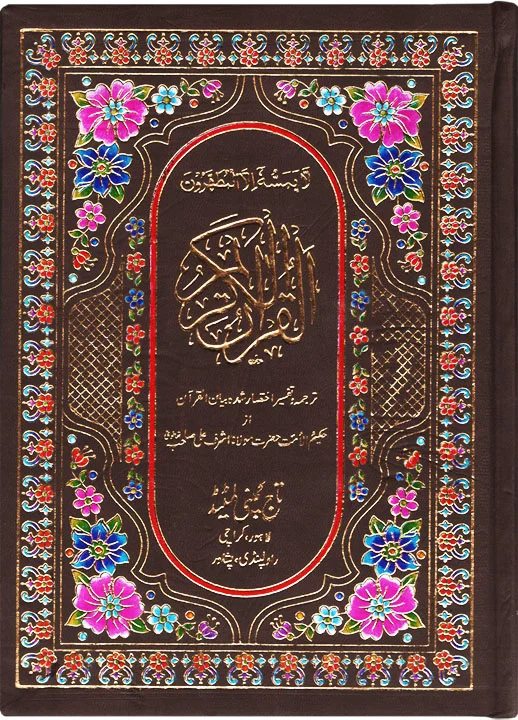 لا يمسه الا المطهرون
القرآن الكريم
ترجمہ و تفسیر اختصار شدہ بیان القرآن
از
حکیم الامت حضرت مولانا اشرف علی صاحب تھانوی
تاج کمپنی لمیٹڈ
لاہور، کراچی
راولپنڈی، پشاور